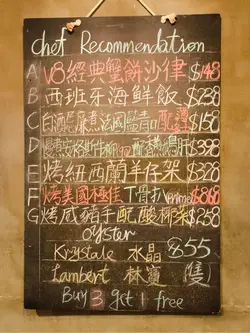 chef Recommendation
A V8經典蟹餅沙律 $148
B 西班牙海鮮飯 $238
C 白酒 煮法國藍青口配 $158
D 慢煮安格斯牛柳 配香煎鴨肝 $398
E 烤紐西蘭羊仔架 $328
F 烤美國極佳T骨扒 Prime $868
G 烤咸豬手配酸椰菜 $258
oyster
Krystale 水晶 $55
Lambert 林寶 (隻)
Buy 3 get 1 free